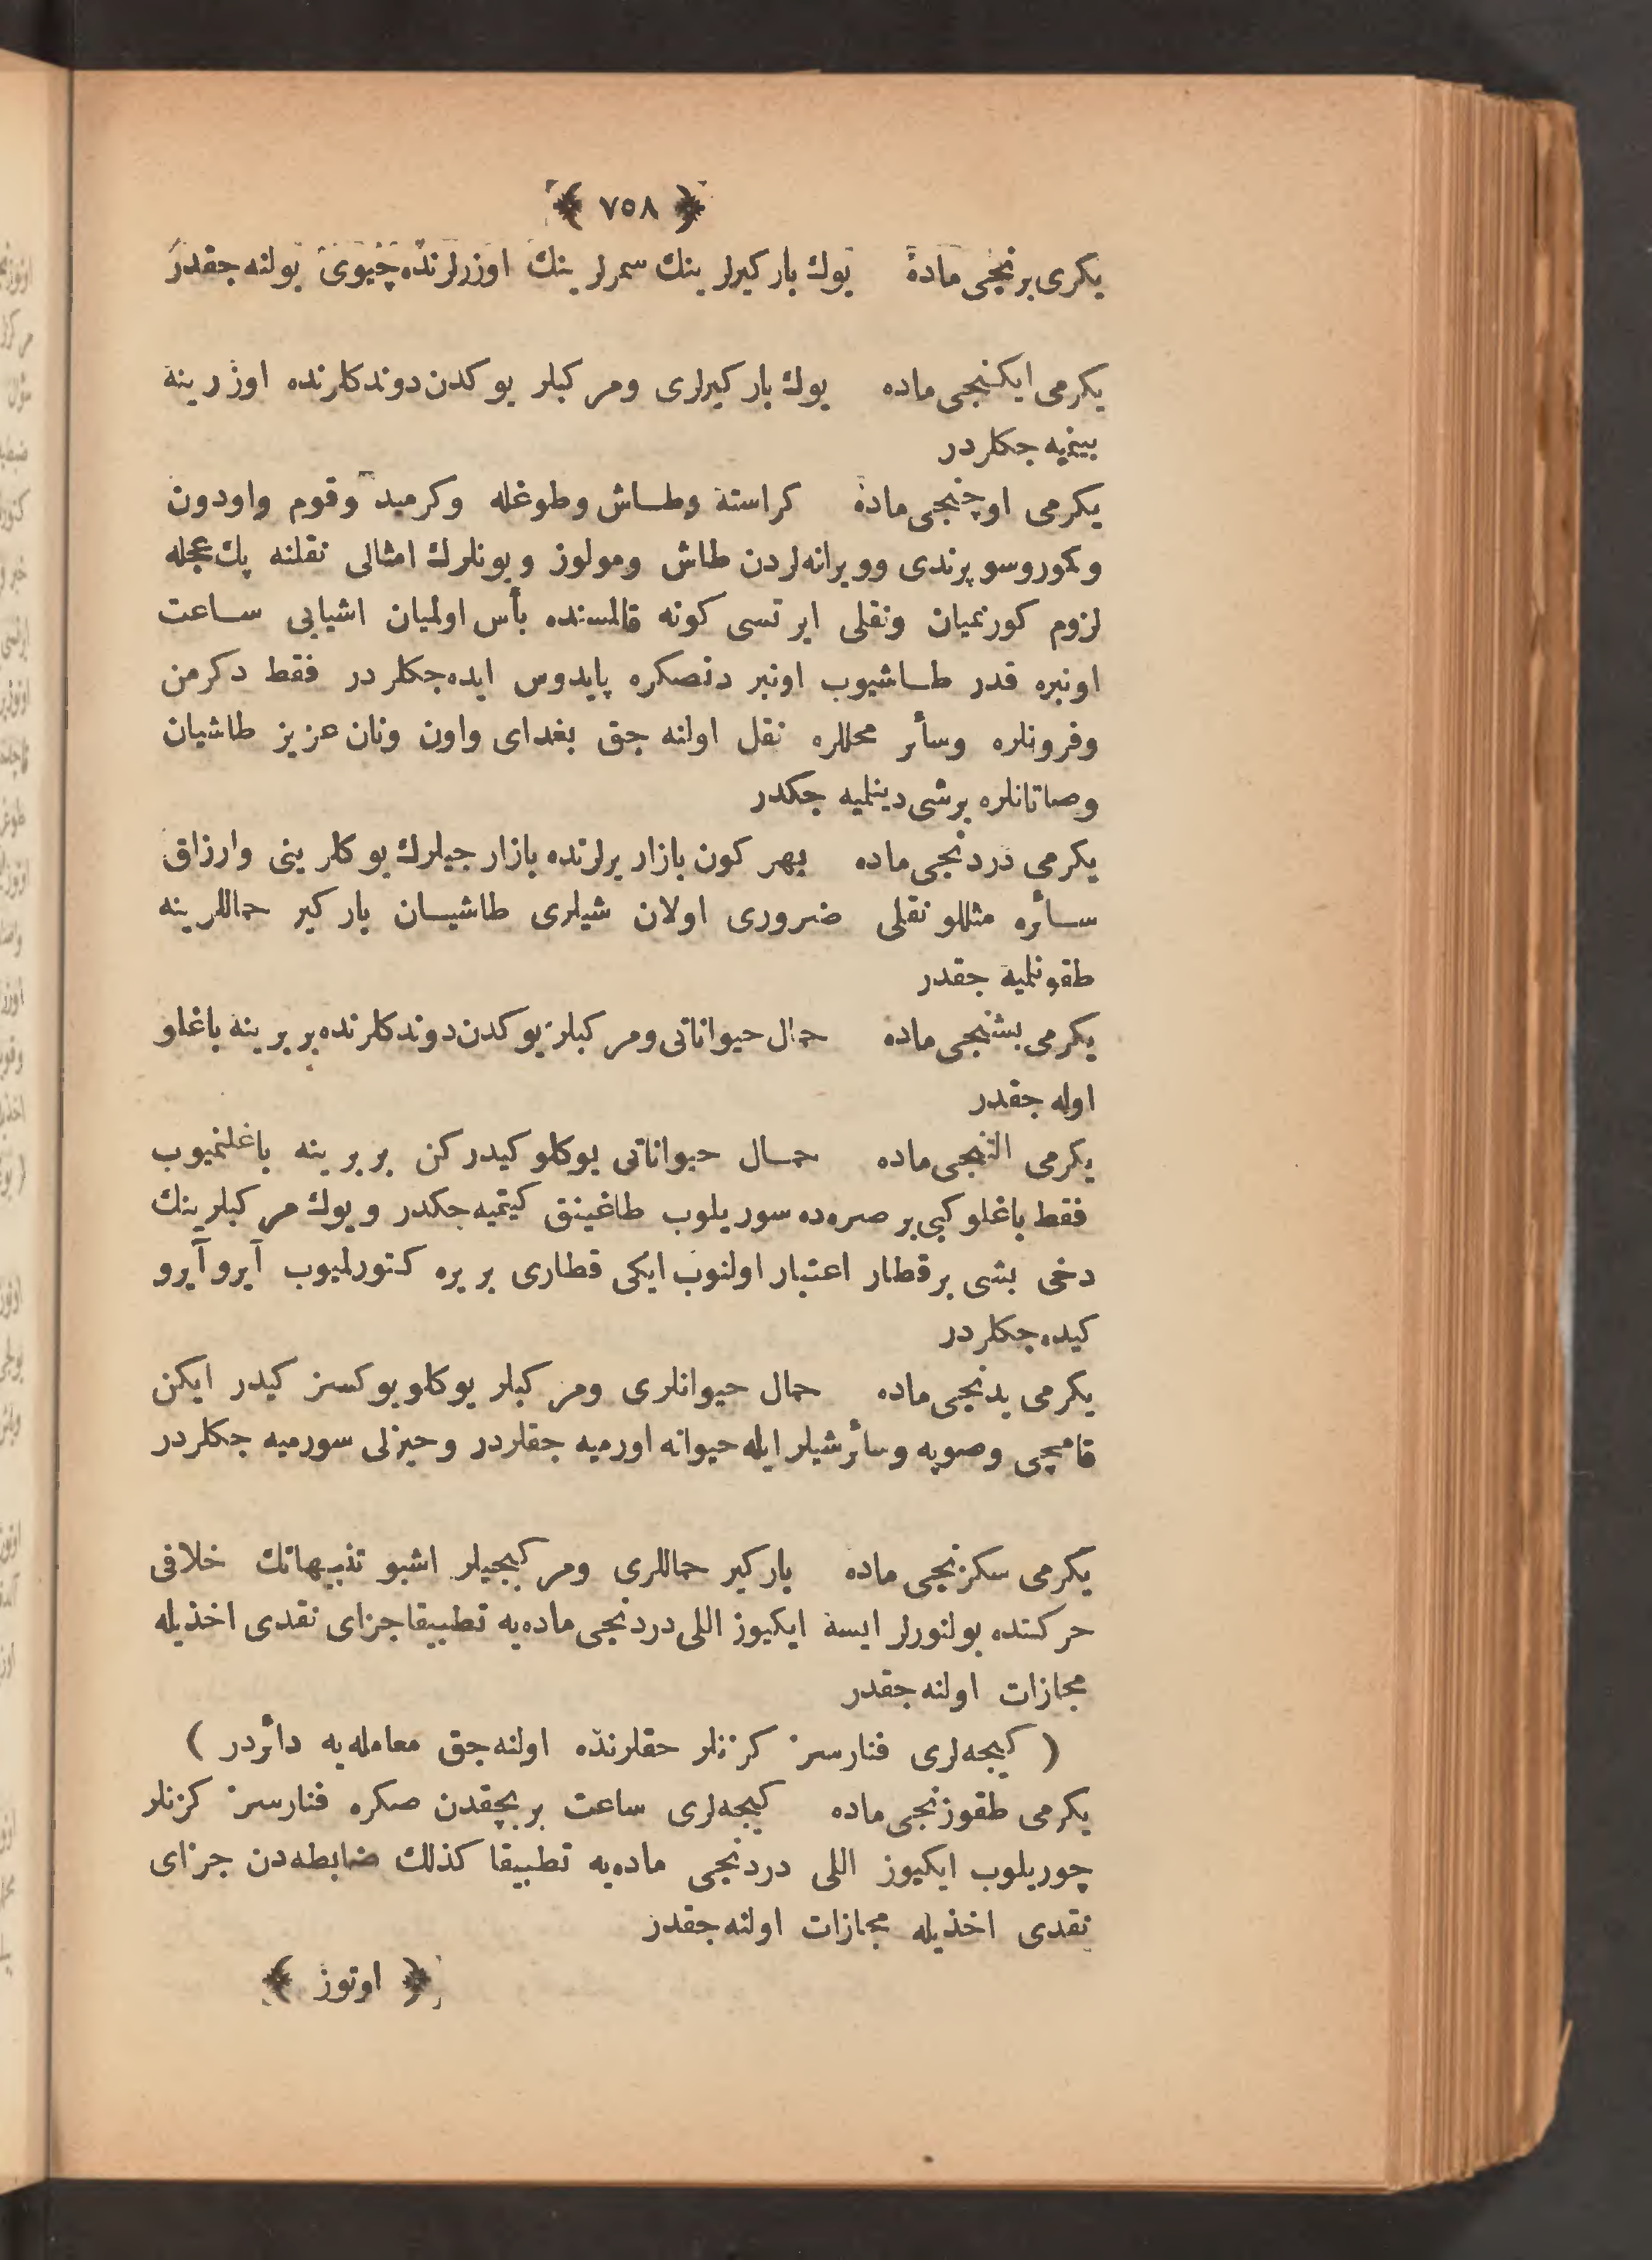 ﴿ ٧٥٨ ﴾
یكرمی برنجی ماده یوك باركیرلرینك سمرلرینك اوزرلرنده چیوی بولنه جقدر
یكرمی ایكنجی ماده یوك باركیرلری ومركبلر یوكدن دوندكلرنده اوزرینه
بینمیه جكلردر
یكرمی اوچنجی ماده كراسته وطاش وطوغله وكرمید وقوم واودون
وكمور وسوپرندی وویرانه‌لردن طاش ومولوز وبونلرك امثالی نقلنه پك عجله
لزوم كورنمیان ونقلی ایرتسی كونه قالمسنده بأس اولمیان اشیایی ساعت
اونبره قدر طاشیوب اونبردنصكره پایدوس ایده‌جكلردر فقط دكرمن
وفرونلره وسائر محللره نقل اولنه جق بغدای واون ونان عزیز طاشیان
وصاتانلره برشی دینلمیه جكدر
یكرمی دردنجی ماده بهر كون بازار یرلرنده بازارجیلرك یوكلرینی وارزاق
سائره مثللو نقلی ضروری اولان شیلری طاشیان باركیر حماللرینه
طقونلمیه جقدر
یكرمی بشنجی ماده حمال حیواناتی ومركبلر یوكدن دوندكلرنده بربرینه باغلو
اوله جقدر
یكرمی التنجی ماده حمال حیواناتی یوكلو كیدركن بربرینه باغلنمیوب
فقط باغلو كبی بر صره‌ده سوریلوب طاغینق كیتمیه‌جكدر ویوك مركبلرینك
دخی بشی برقطار اعتبار اولنوب ایكی قطاری بربره كتورلمیوب آیرو آیرو
كیده‌جكلردر
یكرمی یدنجی ماده حمال حیوانلری ومركبلر یوكلو یوكسز كیدر ایكن
قامچی وصوپه وسائر شیلر ایله حیوانه اورمیه جقلردر وحیزلی سورمیه جكلردر
یكرمی سكزنجی ماده باركیر حماللری ومركبجیلر اشبو تنبیهاتك خلافی
حركتده بولنورلر ایسه ایكیوز اللی دردنجی ماده‌یه تطبیقا جزای نقدی اخذیله
مجازات اولنه‌جقدر
( كیجه‌لری فنارسز كزنلر حقلرنده اولنه‌جق معامله‌یه دائردر )
یكرمی طقوزنجی ماده كیجه‌لری ساعت بربچقدن صكره فنارسز كزنلر
چوریلوب ایكیوز اللی دردنجی ماده‌یه تطبیقا كذلك ضابطه‌دن جزای
نقدی اخذیله مجازات اولنه‌جقدر
﴿ اوتوز ﴾